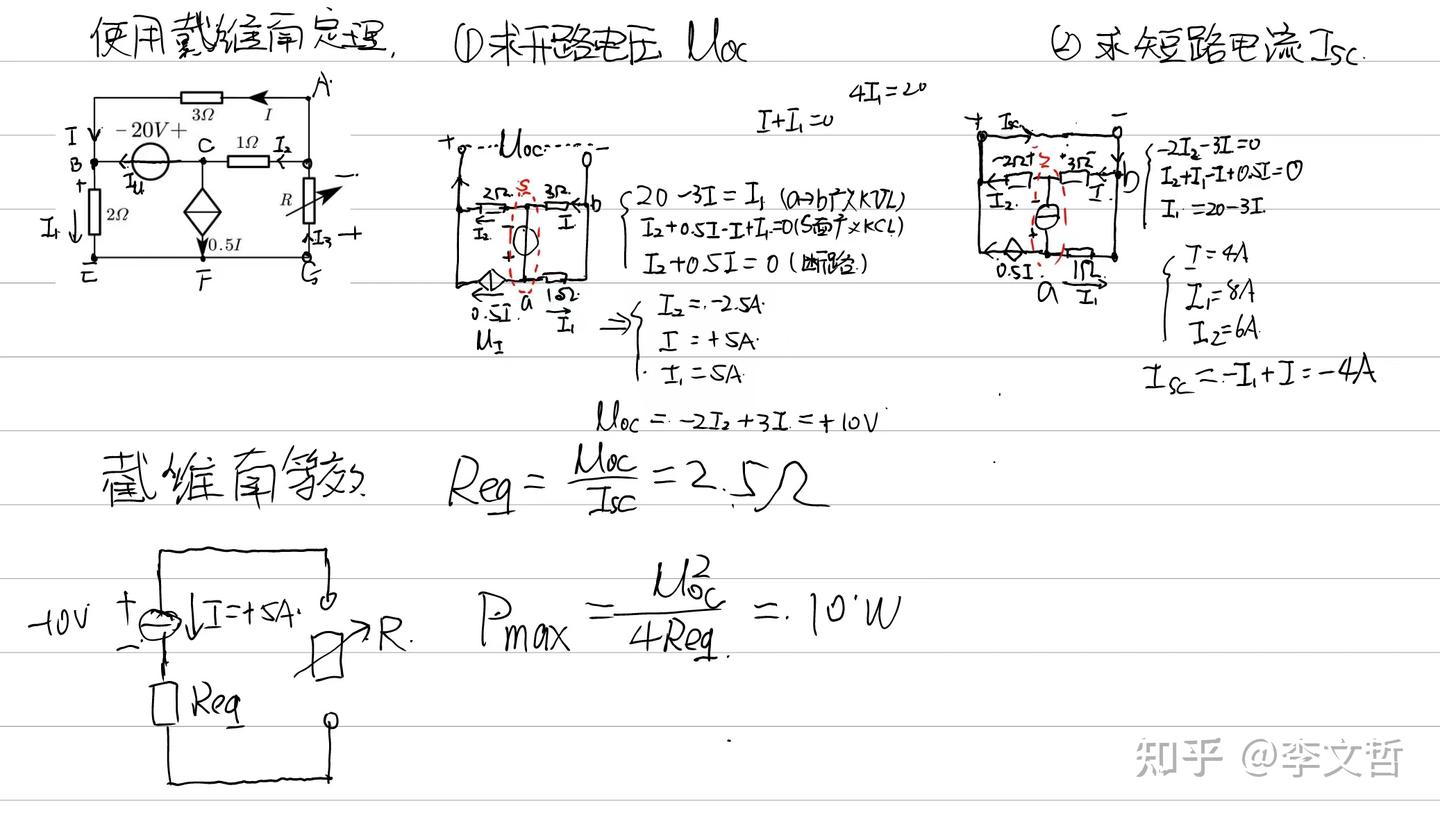 使用戴维南定理,
①求开路电压 Uoc
②求短路电流 Isc.
A.
3Ω
I
I
-20V+
C
1Ω
I₂
B
Iu
+
2Ω
I₁
R
-
0.5I
I₃ +
E
F
G
4I₁=20
I+I₁=0
+ Uoc -
2Ω
S
3Ω
b
I₂
-
I
+
0.5I
a
1Ω
I₁
U_I
20-3I=I₁ (a→b广义KVL)
I₂+0.5I-I+I₁=0(S面广义KCL)
I₂+0.5I=0 (断路)
⇒ I₂=-2.5A.
I=+5A.
I₁=5A.
Uoc=-2I₂+3I=+10V
+ Isc -
-2Ω+
S
+3Ω-
b
I₂
I
-
+
0.5I
a
1Ω
I₁
-2I₂-3I=0
I₂+I₁-I+0.5I=0
I₁=20-3I
I=4A
I₁=8A
I₂=6A.
Isc=-I₁+I=-4A
戴维南等效
Req=Uoc/Isc=2.5Ω
10V
+
-
I=+5A.
R.
Req
Pmax=Uoc²/4Req=10W
知乎 @李文哲